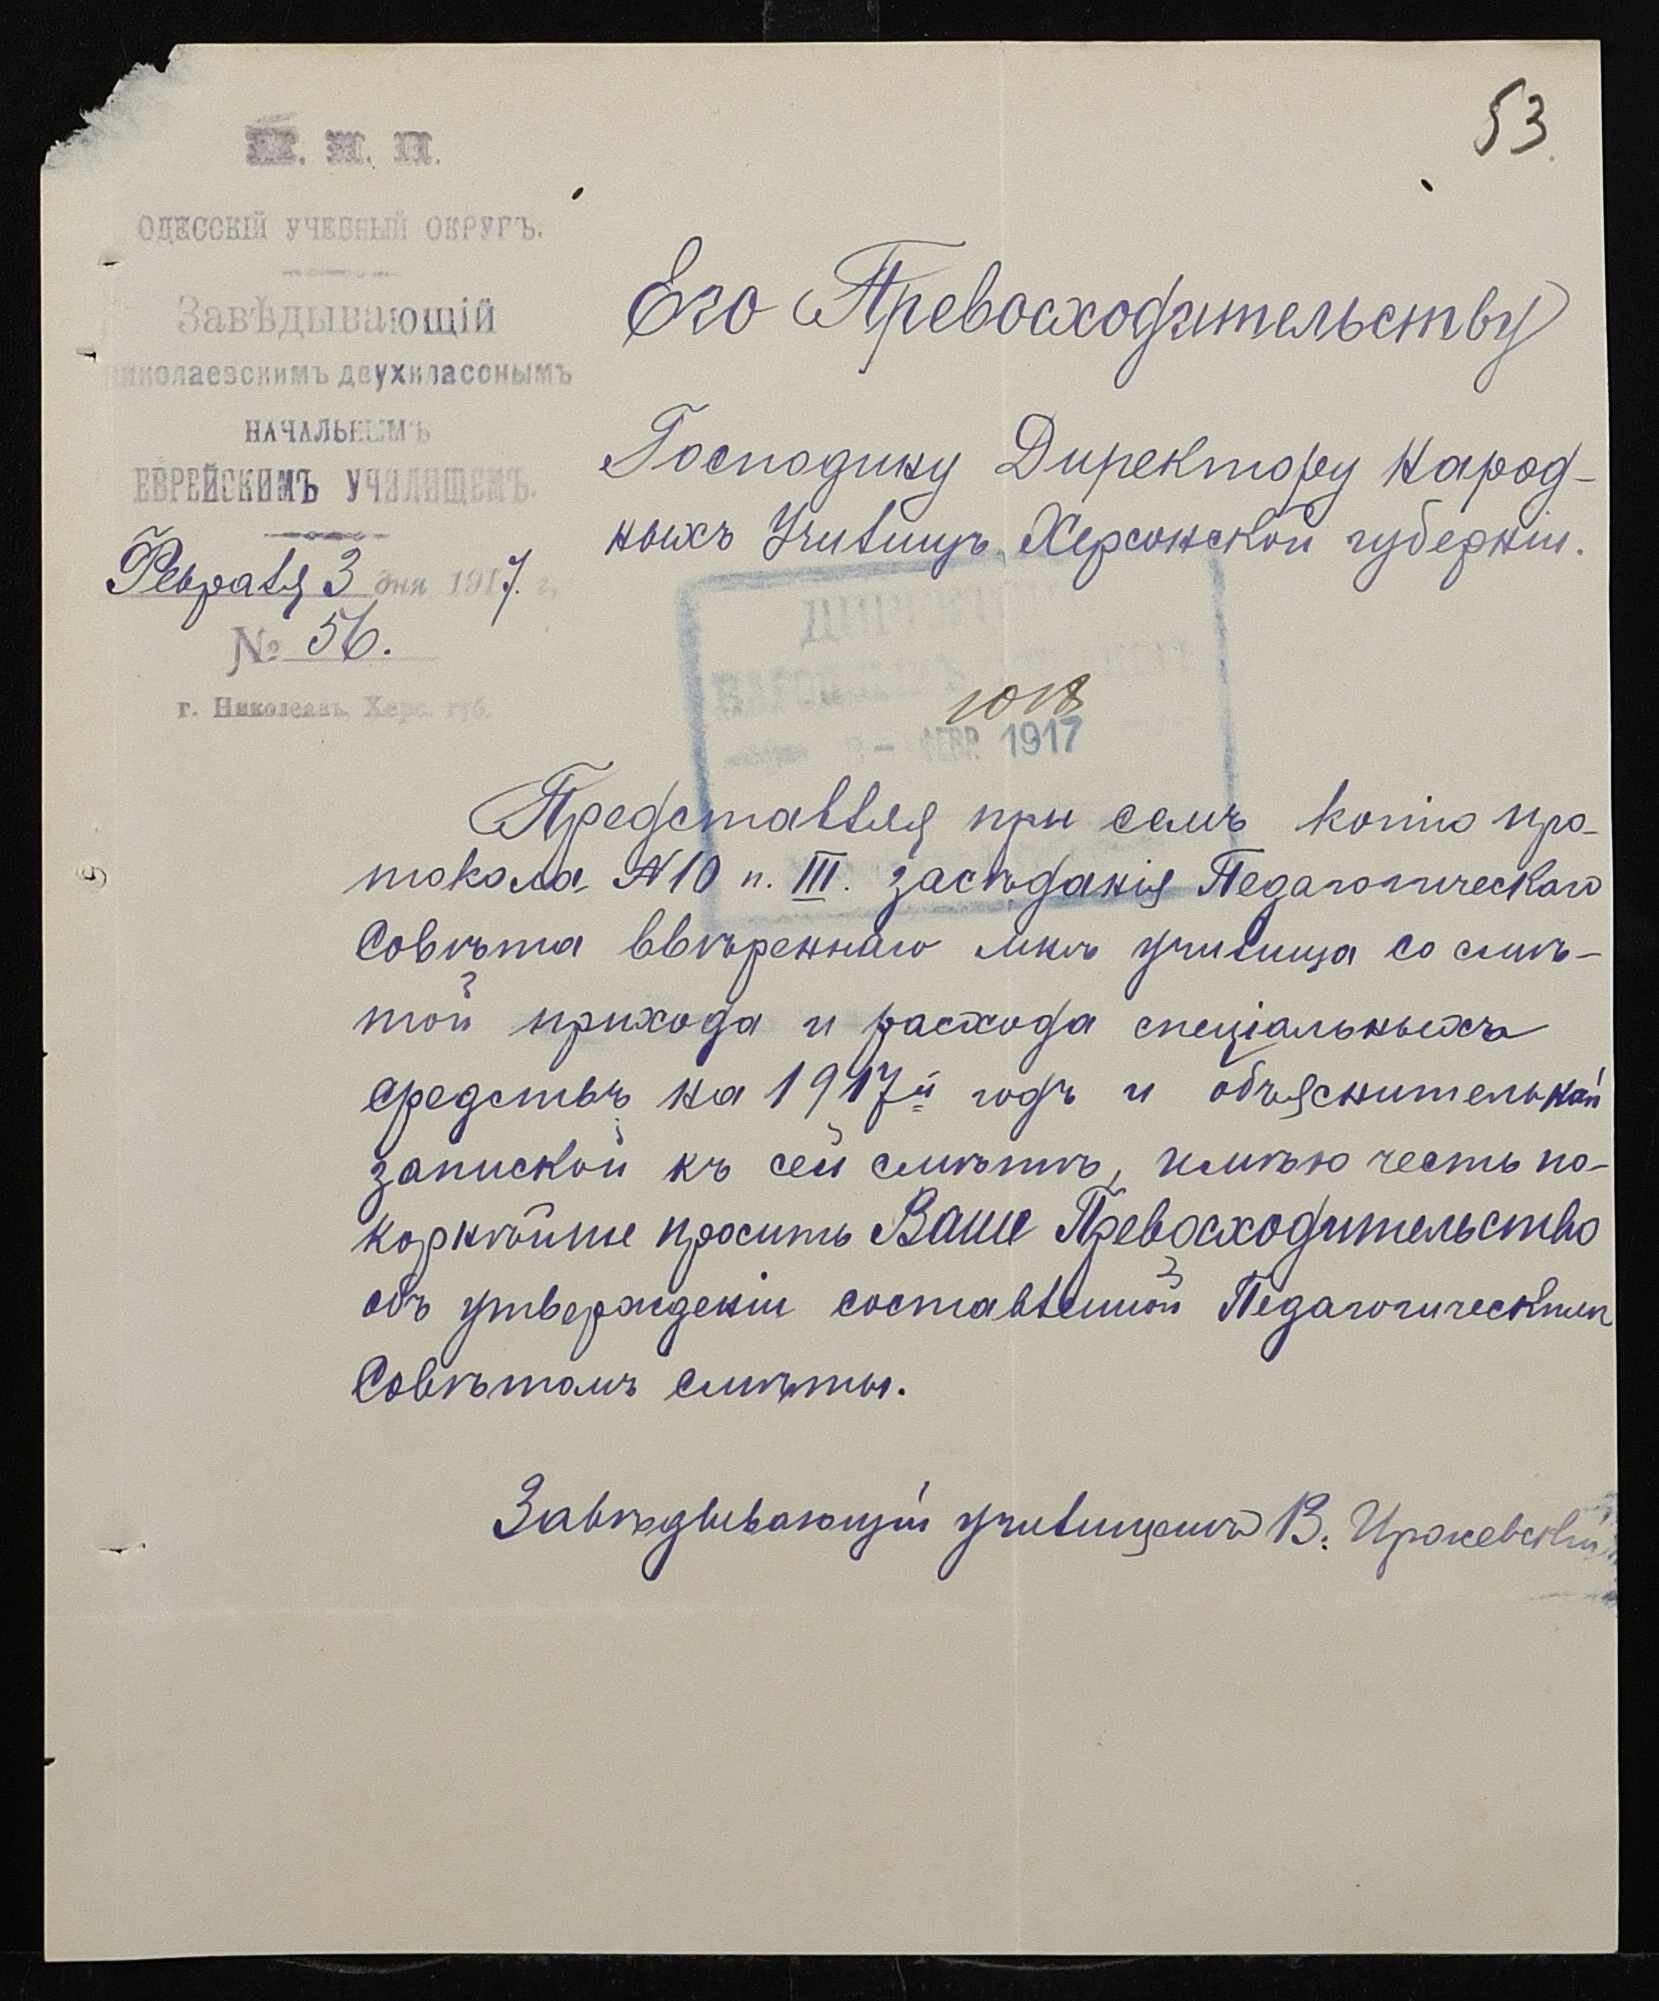 53
М. Н. П.
ОДЕССКІЙ УЧЕБНЫЙ ОКРУГЪ.
Завѣдывающій
николаевскимъ двухкласснымъ
НАЧАЛЬНЫМЪ
ЕВРЕЙСКИМЪ УЧИЛИЩЕМЪ.
Февраля 3 дня 1917 г,
№ 56.
г. Николаевъ, Херс. губ.
Его Превосходительству
Господину Директору народ-
ныхъ Училищъ Херсонской губерніи.
ФЕВР 1917
Представляя при семъ копію про-
токола N10 п. III. засѣданія Педагогическаго
Совѣта ввѣреннаго мнѣ училища со смѣ-
той прихода и расхода спеціальныхъ
средствъ на 1917й годъ и объяснительной
запиской къ сей смѣтѣ, имѣю честь по-
корнѣйше просить Ваше Превосходительство
объ утвержденіи составленной Педагогическимъ
Совѣтомъ смѣты.
Завѣдывающій училищемъ В.